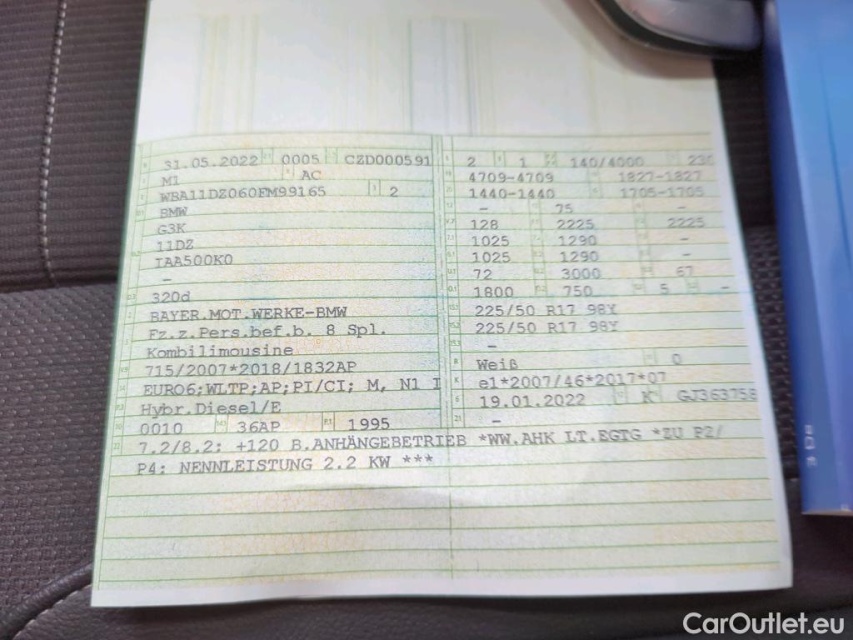 31.05.2022 0005 CZD000591
M1 AC
WBA11DZ060FM99165 2
BMW
G3K
11DZ
IAA500K0
-
320d
BAYER.MOT.WERKE-BMW
Fz.z.Pers.bef.b. 8 Spl.
Kombilimousine
715/2007*2018/1832AP
EURO6;WLTP;AP;PI/CI; M, N1 I
Hybr.Diesel/E
0010 36AP 1995
2 1 140/4000 230
4709-4709 1827-1827
1440-1440 1705-1705
- 75 -
128 2225 2225
1025 1290 -
1025 1290 -
72 3000 67
1800 750 5 -
225/50 R17 98Y
225/50 R17 98Y
-
Weiß 0
e1*2007/46*2017*07
19.01.2022 K GJ363758
-
7.2/8.2: +120 B.ANHÄNGEBETRIEB *WW.AHK LT.EGTG *ZU P2/
P4: NENNLEISTUNG 2.2 KW ***
CarOutlet.eu